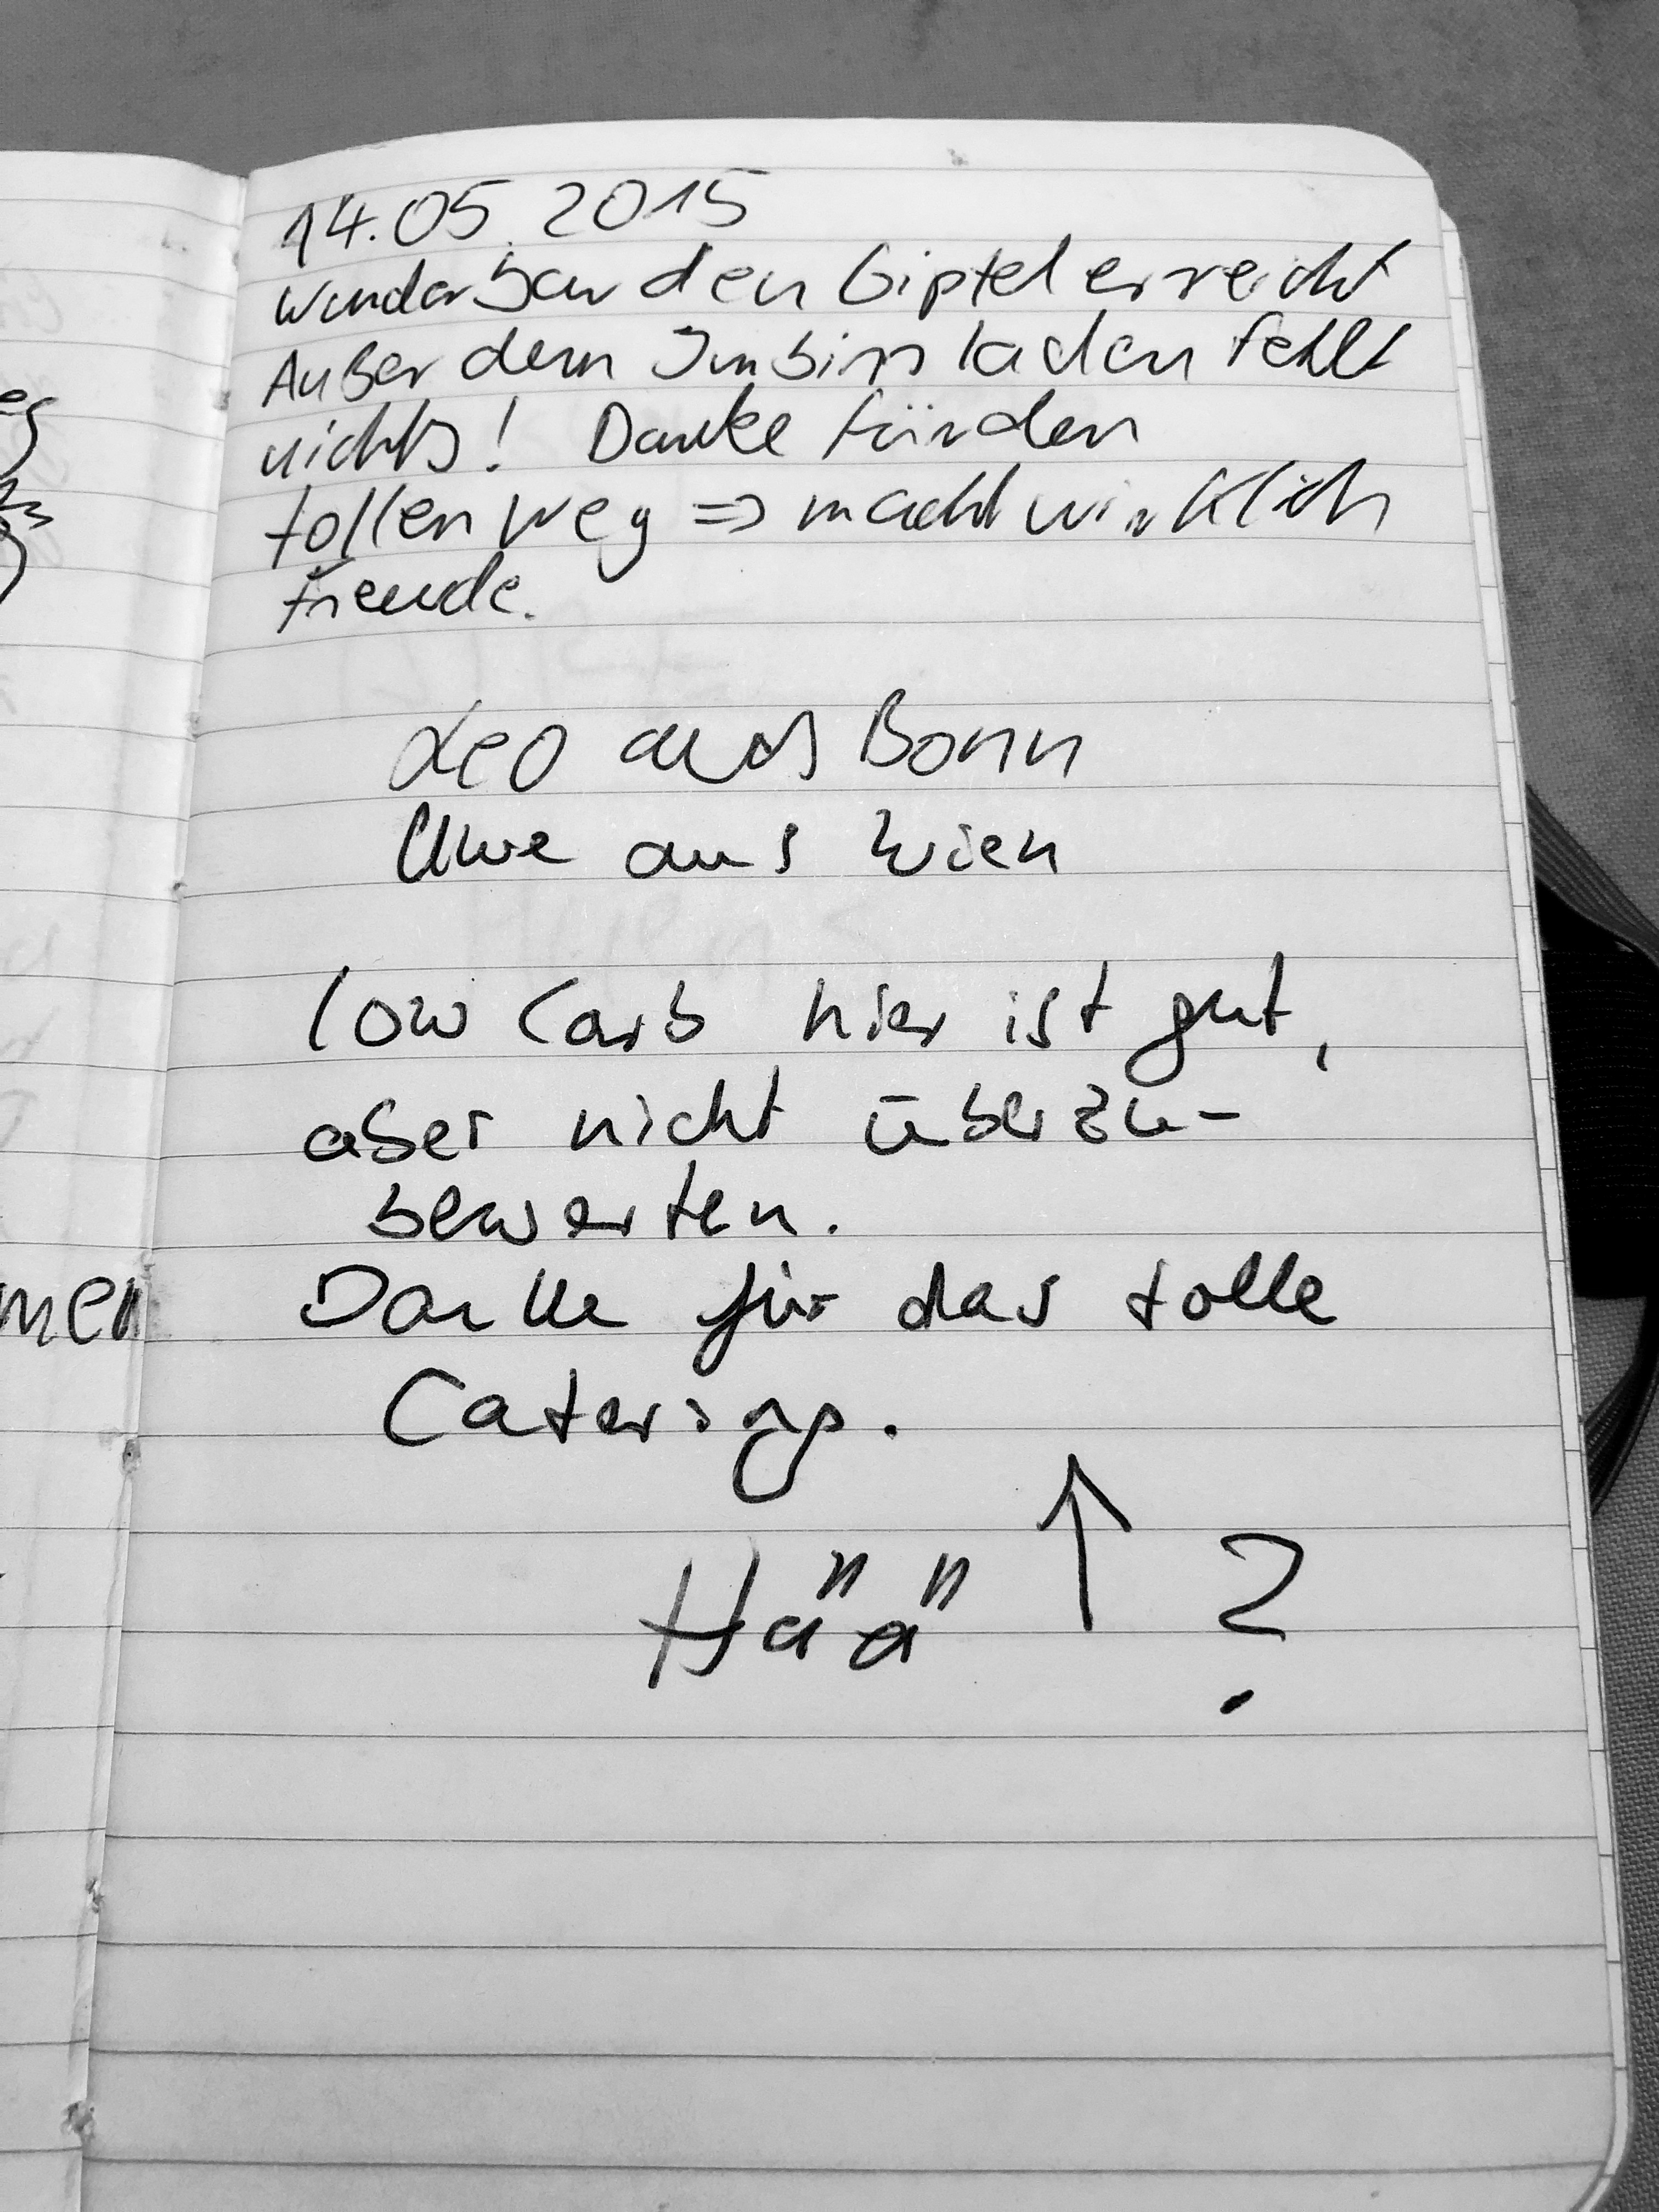 14.05.2015
wunderbar den Gipfel erreicht
Außer dem Imbissladen fehlt
nichts! Danke für den
tollen Weg => macht wirklich
Freude.
Leo aus Bonn
Uwe aus Wien
low Carb hier ist gut,
aber nicht überzu-
bewerten.
Danke für das tolle
Catering.
Hää ↑ ?
men